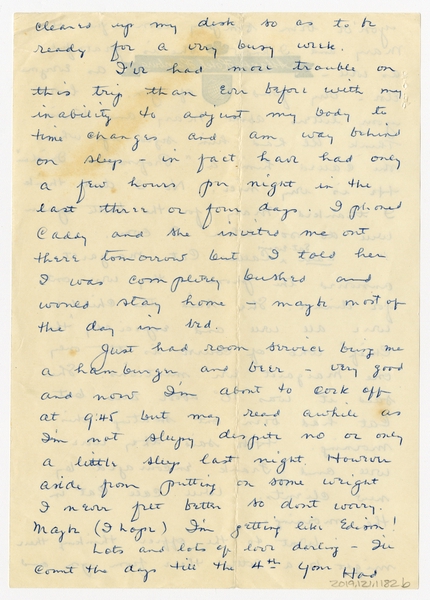 cleared up my desk so as to be
ready for a very busy week.
I've had more trouble on
this trip than Ever before with my
inability to adjust my body to
time changes and am way behind
on sleep - in fact have had only
a few hours per night in the
last three or four days. I phoned
Caddy and she invited me out
there tomorrow but I told her
I was completely bushed and
would stay home - maybe most of
the day in bed.
Just had room service bring me
a hamburger and beer - very good
and now I'm about to cork off
at 9:45 but may read awhile as
I'm not sleepy despite no or only
a little sleep last night However
aside from putting on some weight
I never felt better so dont worry.
Maybe (I hope) I'm getting like Edison!
Lots and lots of love darling - I'll
count the days till the 4th your Had
2019.121.1182b